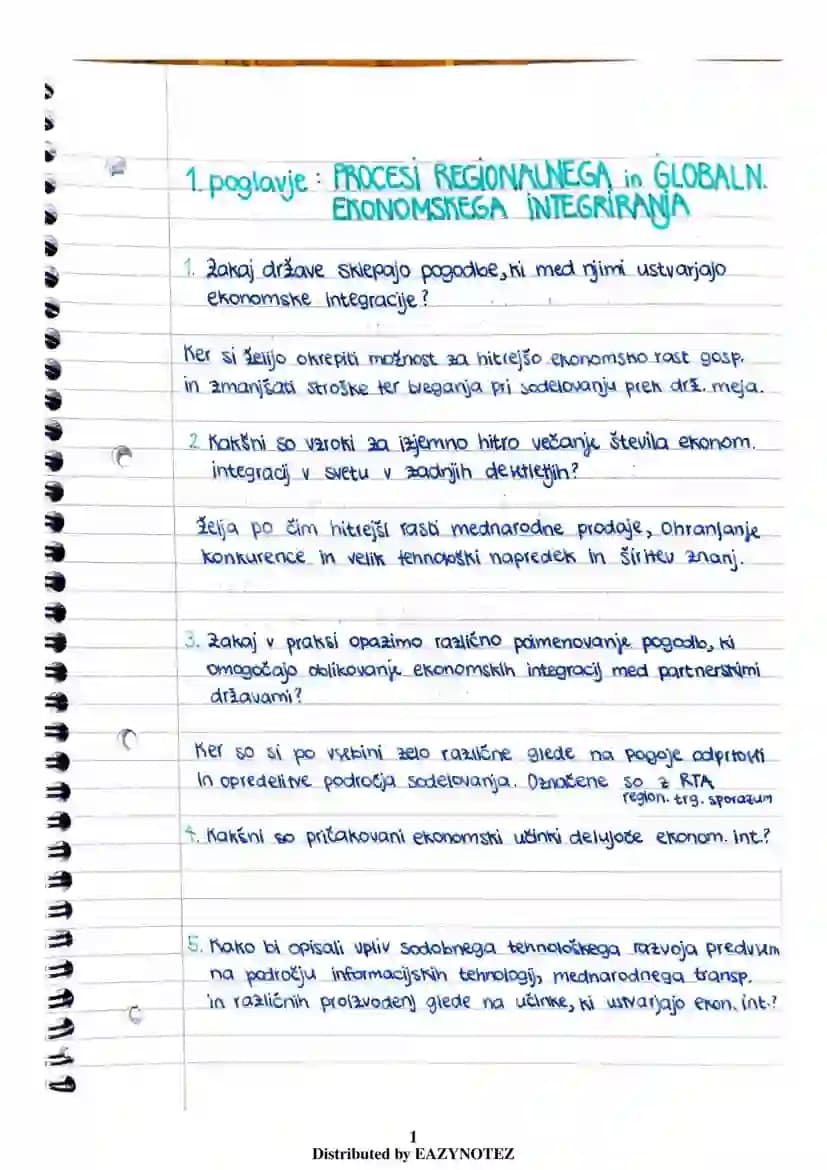 1. poglavje: PROCESI REGIONALNEGA in GLOBALN.
EKONOMSKEGA INTEGRIRANJA
1. Zakaj države sklepajo pogodbe, ki med njimi ustvarjajo
ekonomske integracije?
Ker si želijo okrepiti možnost za hitrejšo ekonomsko rast gosp.
in zmanjšati stroške ter tveganja pri sodelovanju prek drž. meja.
2. Kakšni so vzroki za izjemno hitro večanje števila ekonom.
integracij v svetu v zadnjih desetletjih?
Želja po čim hitrejši rasti mednarodne prodaje, ohranjanje
konkurence in velik tehnološki napredek in širitev znanj.
3. Zakaj v praksi opazimo različno poimenovanje pogodb, ki
omogočajo oblikovanje ekonomskih integracij med partnerskimi
državami?
Ker so si po vsebini zelo različne glede na pogoje odprtosti
in opredelitve področja sodelovanja. Označene so z RTA
region. trg. sporazum
4. Kakšni so pričakovani ekonomski učinki delujoče ekonom. int.?
5. Kako bi opisali vpliv sodobnega tehnološkega razvoja predvsem
na področju informacijskih tehnologij, mednarodnega transp.
in različnih proizvodenj glede na učinke, ki ustvarjajo ekon. int.?
1
Distributed by EAZYNOTEZ